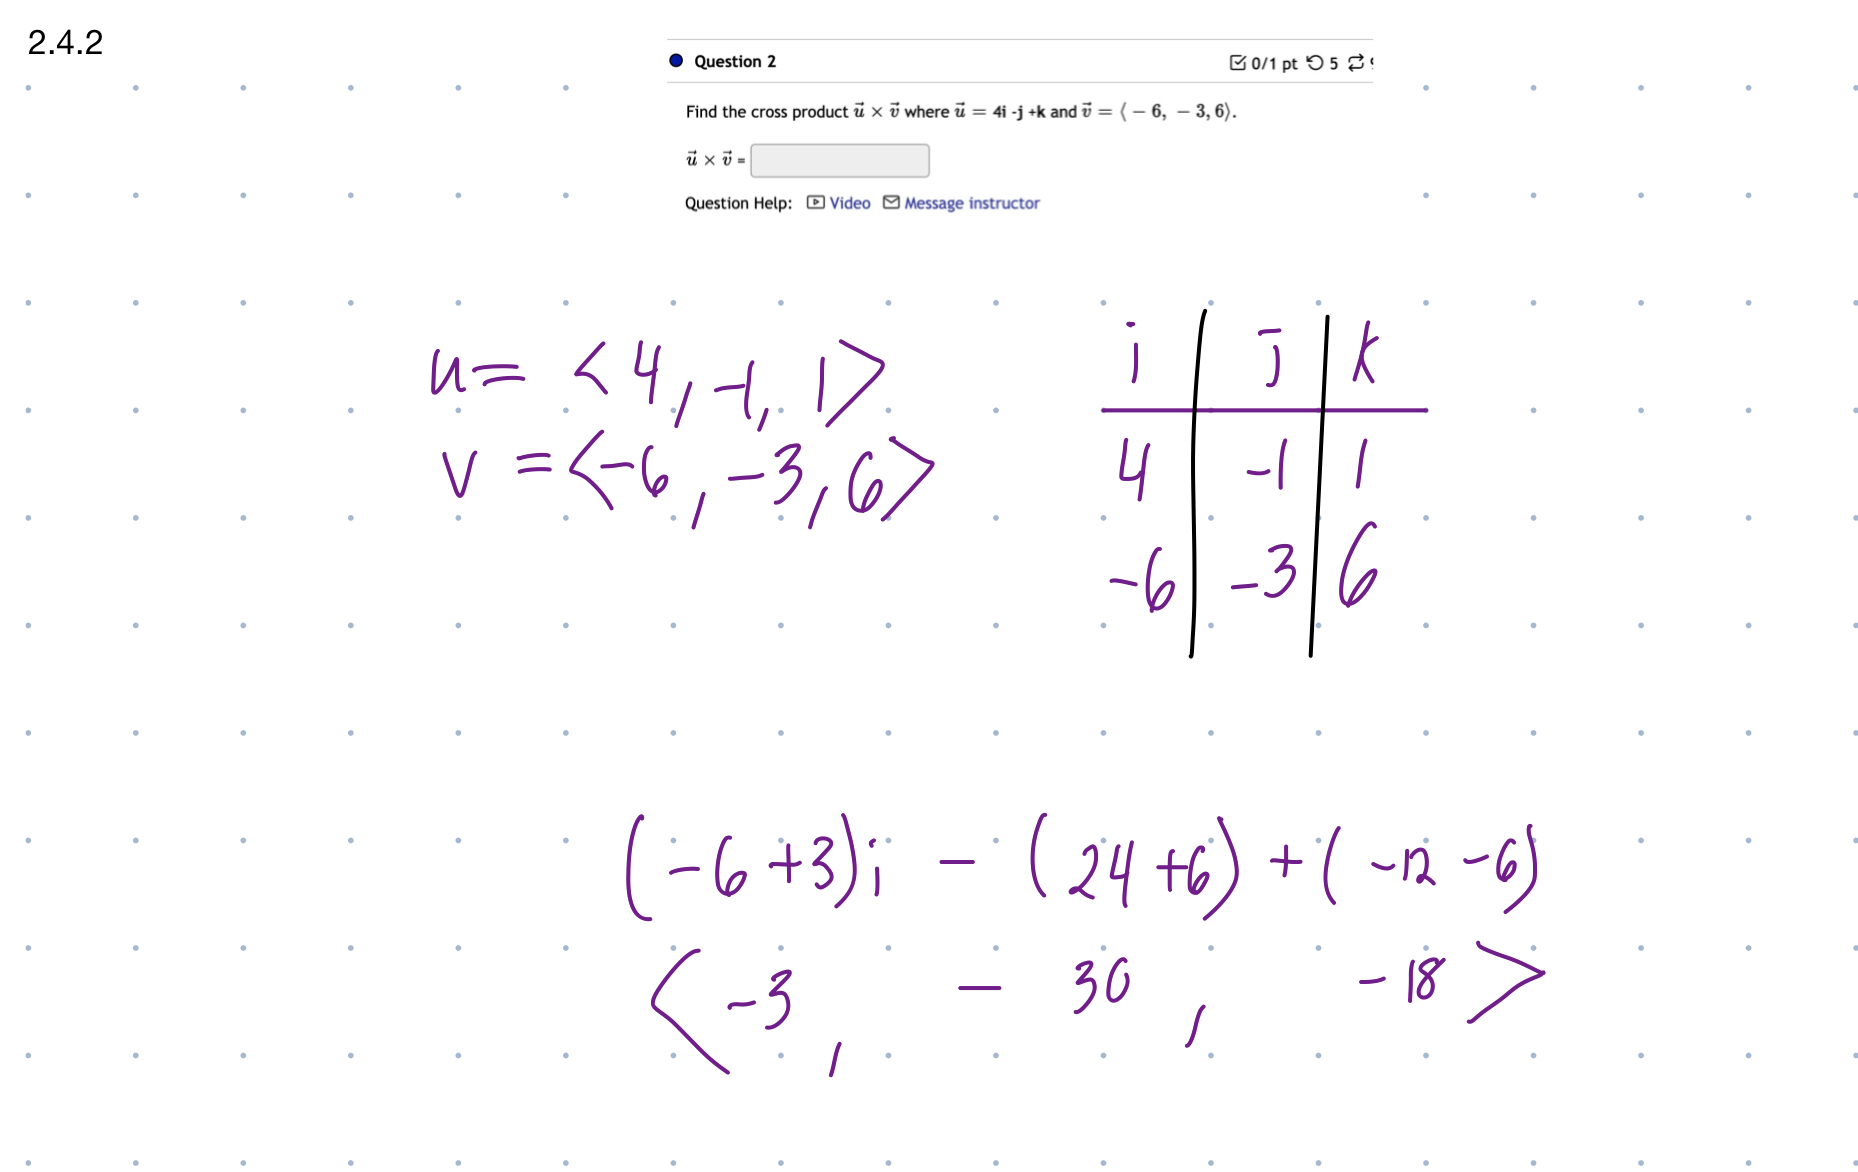 2.4.2
Question 2 0/1 pt 5
Find the cross product u⃗ × v⃗ where u⃗ = 4i -j +k and v⃗ = ⟨ − 6, − 3, 6⟩.
u⃗ × v⃗ =
Question Help: Video Message instructor
u = <4, -1, 1>
v = <-6, -3, 6>
i j k
4 -1 1
-6 -3 6
(-6 +3)i - (24 +6) + (-12 -6)
<-3, - 30, -18>